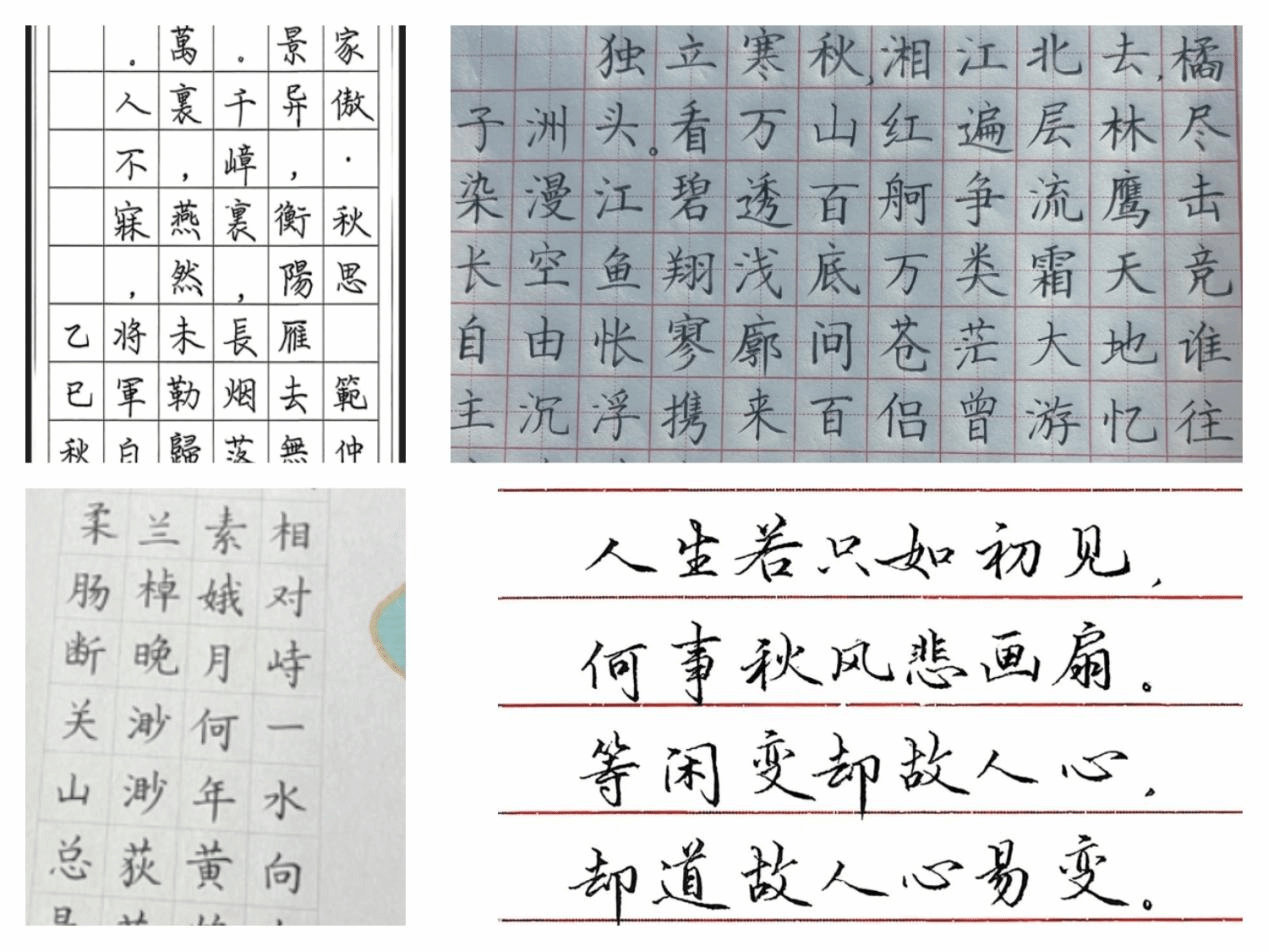 家傲·秋思 範仲
景异，衡陽雁去無
。千嶂裏，長烟落
萬裏，燕然未勒歸
。人不寐，将軍白
乙巳秋
独立寒秋，湘江北去，橘
子洲头。看万山红遍层林尽
染漫江碧透百舸争流鹰击
长空鱼翔浅底万类霜天竞
自由怅寥廓问苍茫大地谁
主沉浮携来百侣曾游忆往
相对峙一水向
素娥月何年黄
兰棹晚渺渺荻
柔肠断关山总
人生若只如初见，
何事秋风悲画扇。
等闲变却故人心，
却道故人心易变。